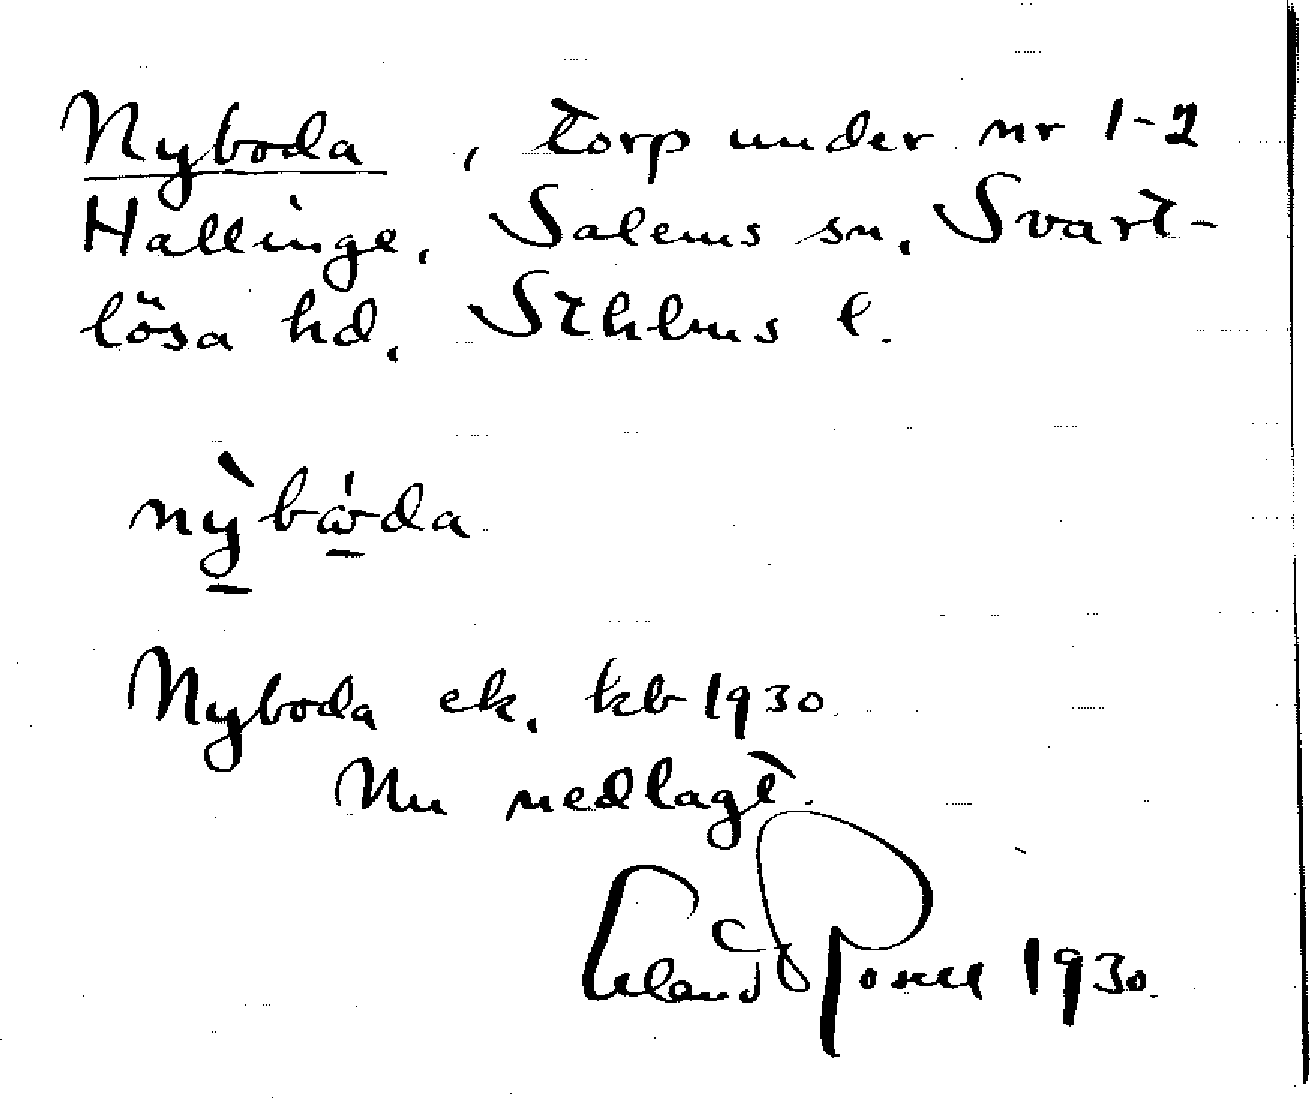 Nyboda, torp under nr 1-2
Hallinge, Salems sn, Svart-
lösa hd, Sthlms l.
nỳbǻda
Nyboda ek. kb 1930
Nu nedlagt.
Erland Rosell 1930.